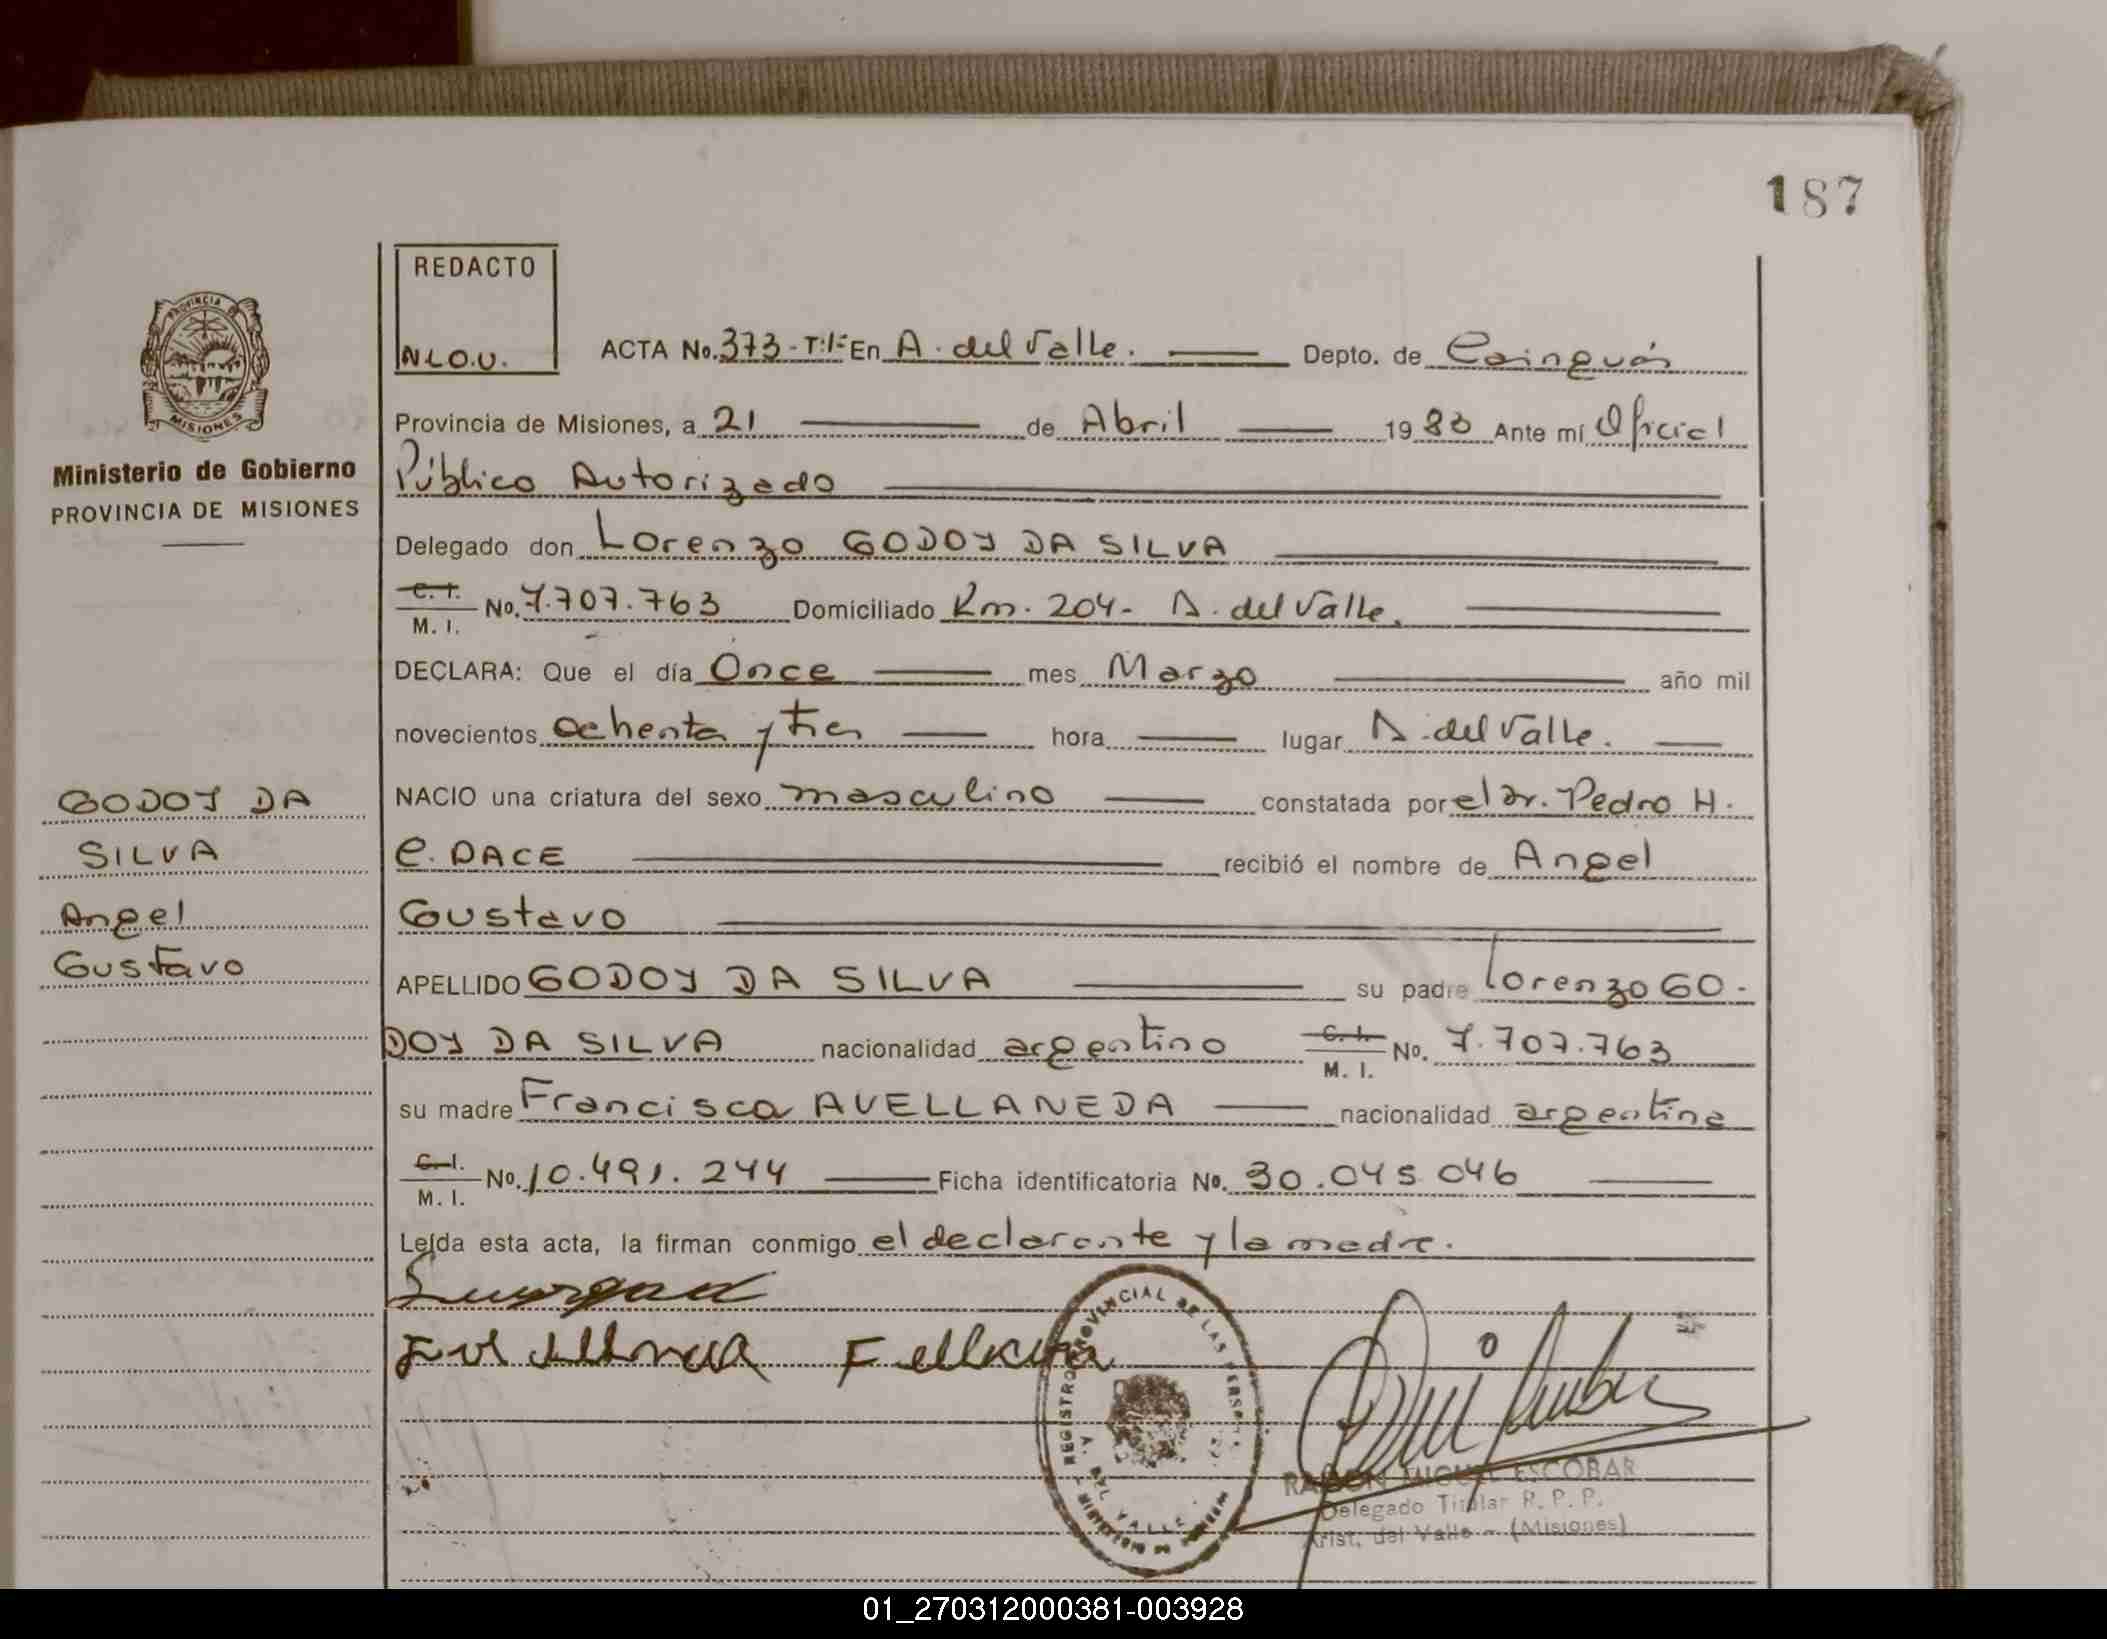 187
REDACTO
N.L.O.U.
ACTA No. 373 - T:1:- En A. del Valle. Depto. de Cainguás
Provincia de Misiones, a 21 de Abril 1983 Ante mí Oficial
Público Autorizado
Delegado don Lorenzo GODOY DA SILVA
C. I.
M. I. No. 7.707.763 Domiciliado Km. 204- A. del Valle.
DECLARA: Que el día Once mes Marzo año mil
novecientos ochenta y tres hora lugar A. del Valle.
NACIO una criatura del sexo masculino constatada por el Dr. Pedro H.
C. DACE recibió el nombre de Angel
Gustavo
APELLIDO GODOY DA SILVA su padre Lorenzo GO-
DOY DA SILVA nacionalidad argentino C. I. M. I. No. 7.707.763
su madre Francisca AVELLANEDA nacionalidad argentina
C. I.
M. I. No. 10.491.244 Ficha identificatoria No. 30.045.046
Leída esta acta, la firman conmigo el declarante y la madre.
PROVINCIA DE
MISIONES
Ministerio de Gobierno
PROVINCIA DE MISIONES
GODOY DA
SILVA
Angel
Gustavo
REGISTRO PROVINCIAL DE LAS PERSONAS
A. DEL VALLE
RAMON MIGUEL ESCOBAR
Delegado Titular R. P. P.
Arist. del Valle - (Misiones)
01_270312000381-003928